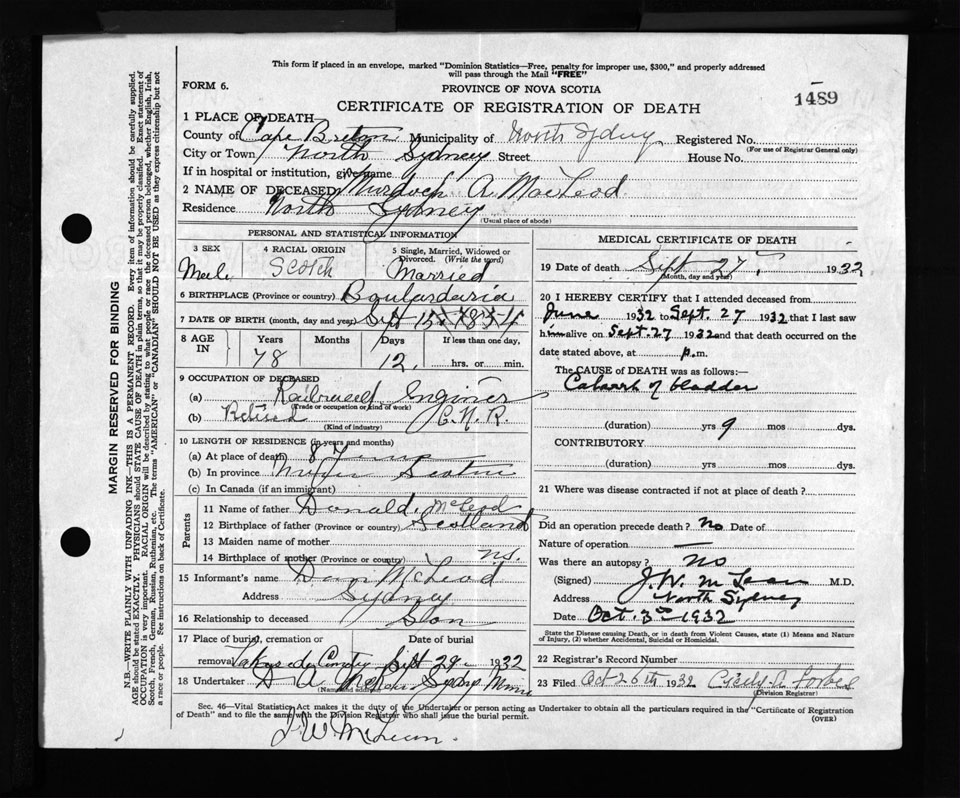 This form if placed in an envelope, marked "Dominion Statistics—Free, penalty for improper use, $300," and properly addressed
will pass through the Mail "FREE"
FORM 6.
PROVINCE OF NOVA SCOTIA
1489
CERTIFICATE OF REGISTRATION OF DEATH
1 PLACE OF DEATH
County of Cape Breton Municipality of North Sydney Registered No.
(For use of Registrar General only)
City or Town North Sydney Street House No.
If in hospital or institution, give name
2 NAME OF DECEASED Murdoch A. MacLeod
Residence North Sydney
(Usual place of abode)
PERSONAL AND STATISTICAL INFORMATION
3 SEX Male
4 RACIAL ORIGIN Scotch
5 Single, Married, Widowed or Divorced. (Write the word) Married
6 BIRTHPLACE (Province or country) Boulardarie
7 DATE OF BIRTH (month, day and year) Sept 15 1854
8 AGE IN Years 78 Months Days 12 If less than one day, hrs. or min.
9 OCCUPATION OF DECEASED
(a) Railroad Enginer
(Trade or occupation or kind of work)
(b) Retired C.N.R.
(Kind of industry)
10 LENGTH OF RESIDENCE (in years and months)
(a) At place of death
(b) In province Scotia
(c) In Canada (if an immigrant)
Parents
11 Name of father Donald McLeod
12 Birthplace of father (Province or country) Scotland
13 Maiden name of mother
14 Birthplace of mother (Province or country) ns.
15 Informant's name Dan McLeod
Address Sydney
16 Relationship to deceased Son
17 Place of burial, cremation or removal Lakeside Date of burial Sept 29 1932
18 Undertaker Sydney Mines
(Name and address)
MEDICAL CERTIFICATE OF DEATH
19 Date of death Sept 27, 1932
(Month, day and year)
20 I HEREBY CERTIFY that I attended deceased from
June 1932 to Sept. 27 1932 that I last saw
him alive on Sept. 27 1932 and that death occurred on the
date stated above, at p.m.
The CAUSE OF DEATH was as follows:—
of bladder
(duration) yrs 9 mos dys.
CONTRIBUTORY
(duration) yrs mos dys.
21 Where was disease contracted if not at place of death?
Did an operation precede death? no Date of
Nature of operation —
Was there an autopsy? no
(Signed) J. W. McLean M.D.
Address North Sydney
Date Oct. 3rd 1932
State the Disease causing Death, or in death from Violent Causes, state (1) Means and Nature of Injury, (2) whether Accidental, Suicidal or Homicidal.
22 Registrar's Record Number
23 Filed Oct 26th 1932 Forbes
(Division Registrar)
Sec. 46—Vital Statistics Act makes it the duty of the Undertaker or person acting as Undertaker to obtain all the particulars required in the "Certificate of Registration
of Death" and to file the same with the Division Registrar who shall issue the burial permit.
(OVER)
J. W. McLean.
MARGIN RESERVED FOR BINDING
N.B.—WRITE PLAINLY WITH UNFADING INK—THIS IS A PERMANENT RECORD. Every item of information should be carefully supplied.
AGE should be stated EXACTLY. PHYSICIANS should STATE CAUSE OF DEATH in plain terms, so that it may be properly classified. Exact statement of
OCCUPATION is very important. RACIAL ORIGIN will be described by stating to what people or race the deceased person belonged, whether English, Irish,
Scotch, French, German, Russian, Ruthenian, etc. The terms "AMERICAN" or "CANADIAN" SHOULD NOT BE USED as they express citizenship but not
a race or people. See instructions on back of Certificate.